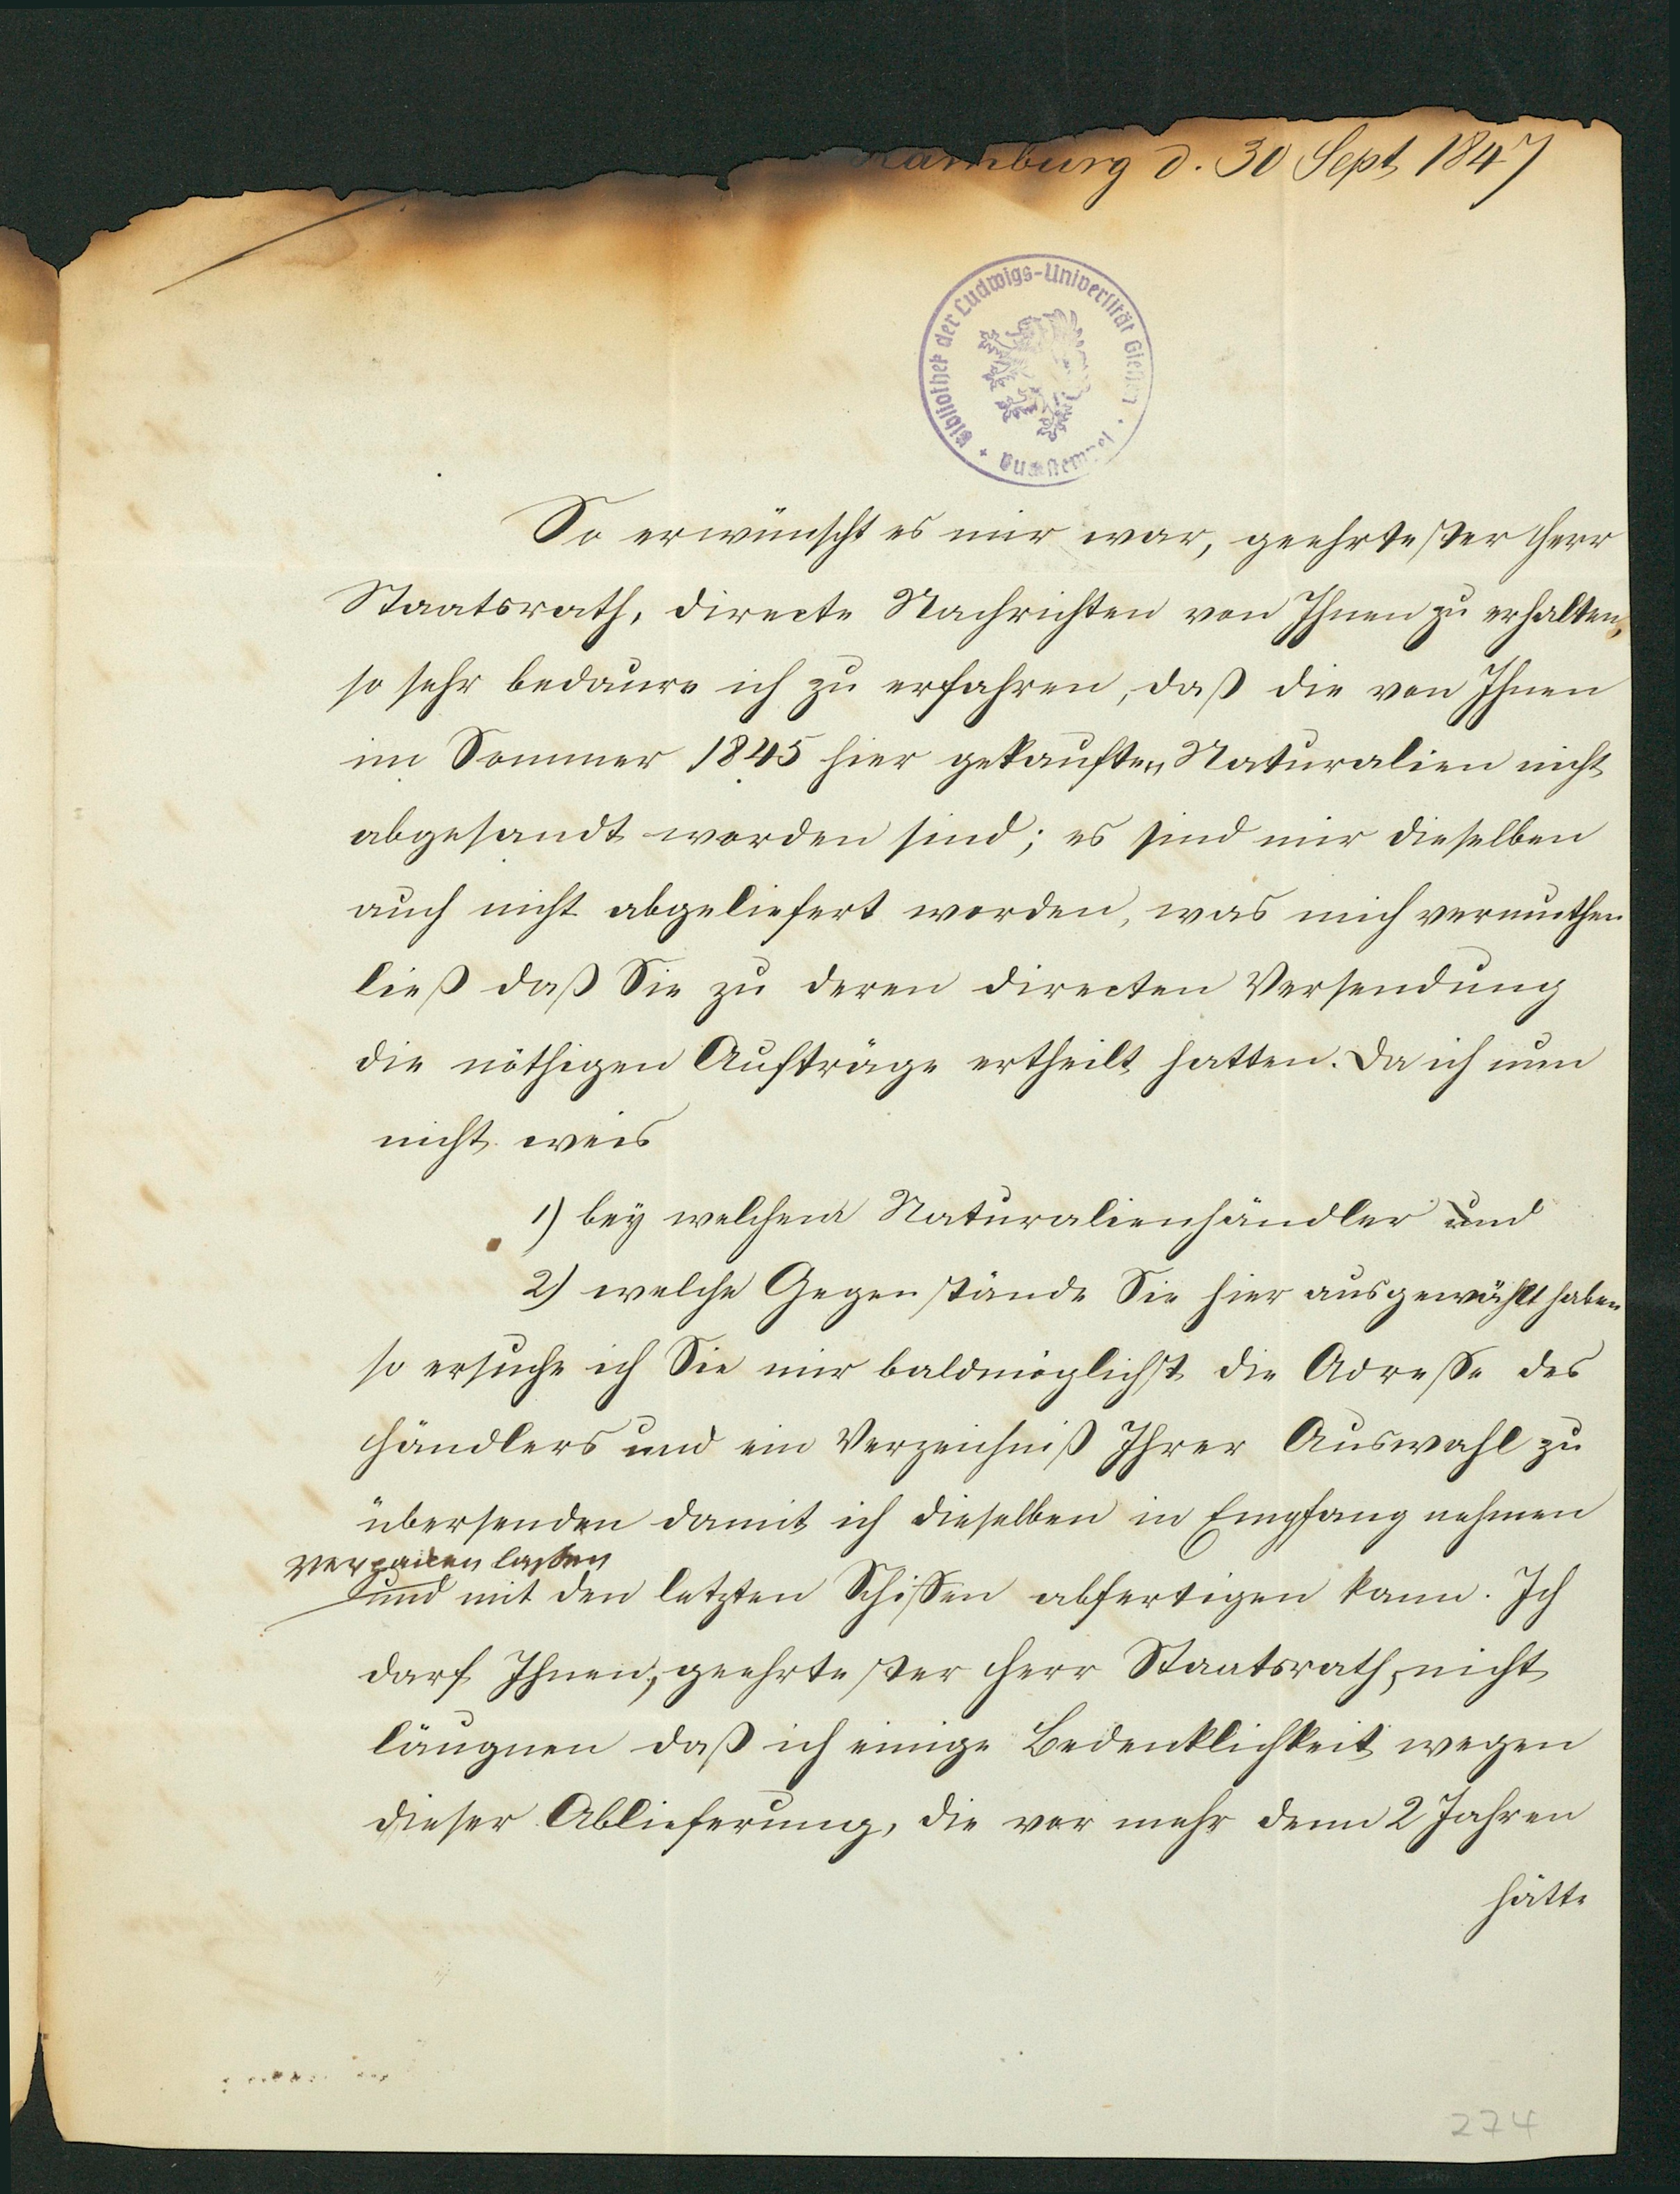 Hamburg d. 30 Sept 1847
Bibliothek der Ludwigs-Universität Gießen
So erwünscht es mir war, geehrtester Herr
Staatsrath, directe Nachrichten von Ihnen zu erhalten,
so sehr bedaure ich zu erfahren, daß die von Ihnen
im Sommer 1845 hier gekauften Naturalien nicht
abgesandt worden sind; es sind mir dieselben
auch nicht abgeliefert worden, was mich vermuthen
ließ daß Sie zu deren directen Versendung
die nöthigen Aufträge ertheilt hatten. Da ich nun
nicht weis
1) bey welchem Naturalienhändler und
2) welche Gegenstände Sie hier ausgewählt haben
so ersuche ich Sie mir baldmöglichst die Adresse des
Händlers und ein Verzeichniß Ihrer Auswahl zu
übersenden damit ich dieselben in Empfang nehmen
verpacken lassen
und mit den letzten Schiffen abfertigen kann. Ich
darf Ihnen, geehrtester Herr Staatsrath, nicht
läugnen daß ich einige Bedenklichkeit wegen
dieser Ablieferung, die vor mehr denn 2 Jahren
hätte
274